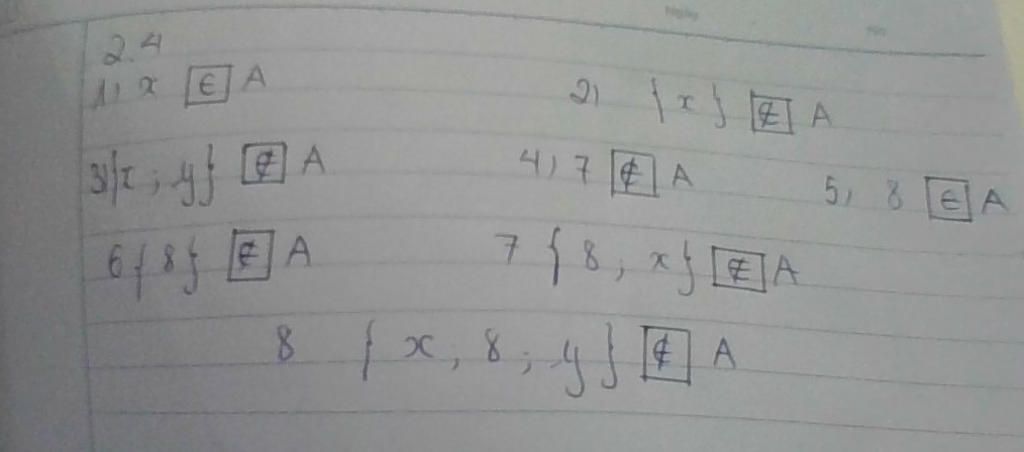 2.4
1, x ∈ A 2) {x} ∉ A
3) {x ; y} ∉ A 4) 7 ∉ A 5, 8 ∈ A
6 {8} ∉ A 7 {8 ; x} ∉ A
8 {x ; 8 ; y} ∉ A